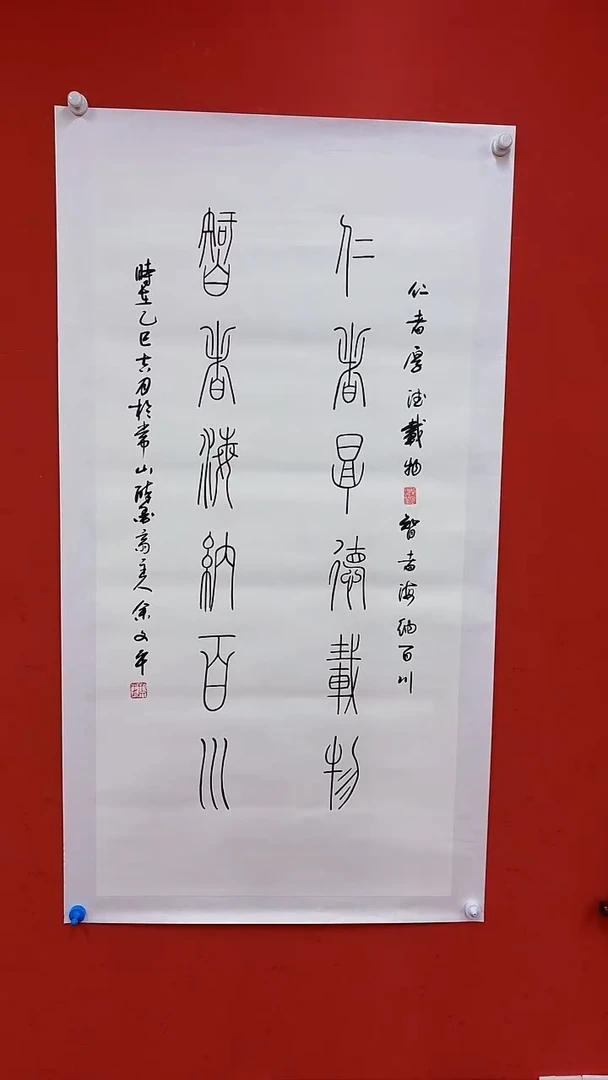 仁者厚德载物 智者海纳百川
仁者厚德載物
智者海納百川
時在乙巳吉月於常山醉墨斋主人余文年